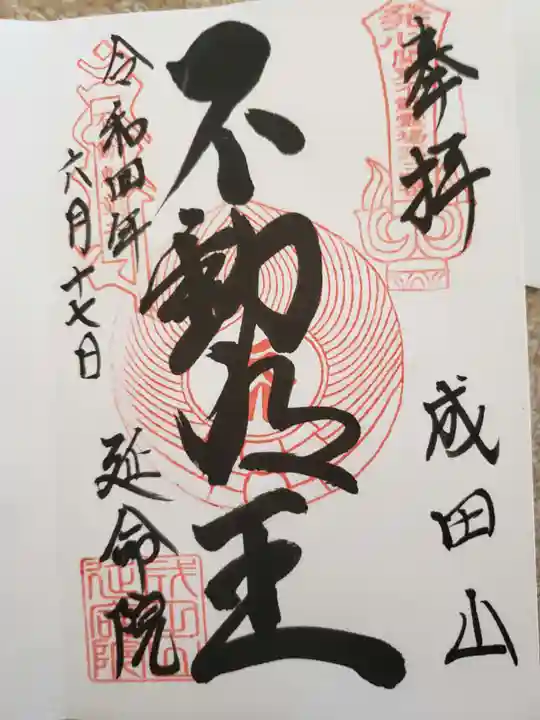 奉拝
成田山
不動明王
令和四年
六月十七日
延命院